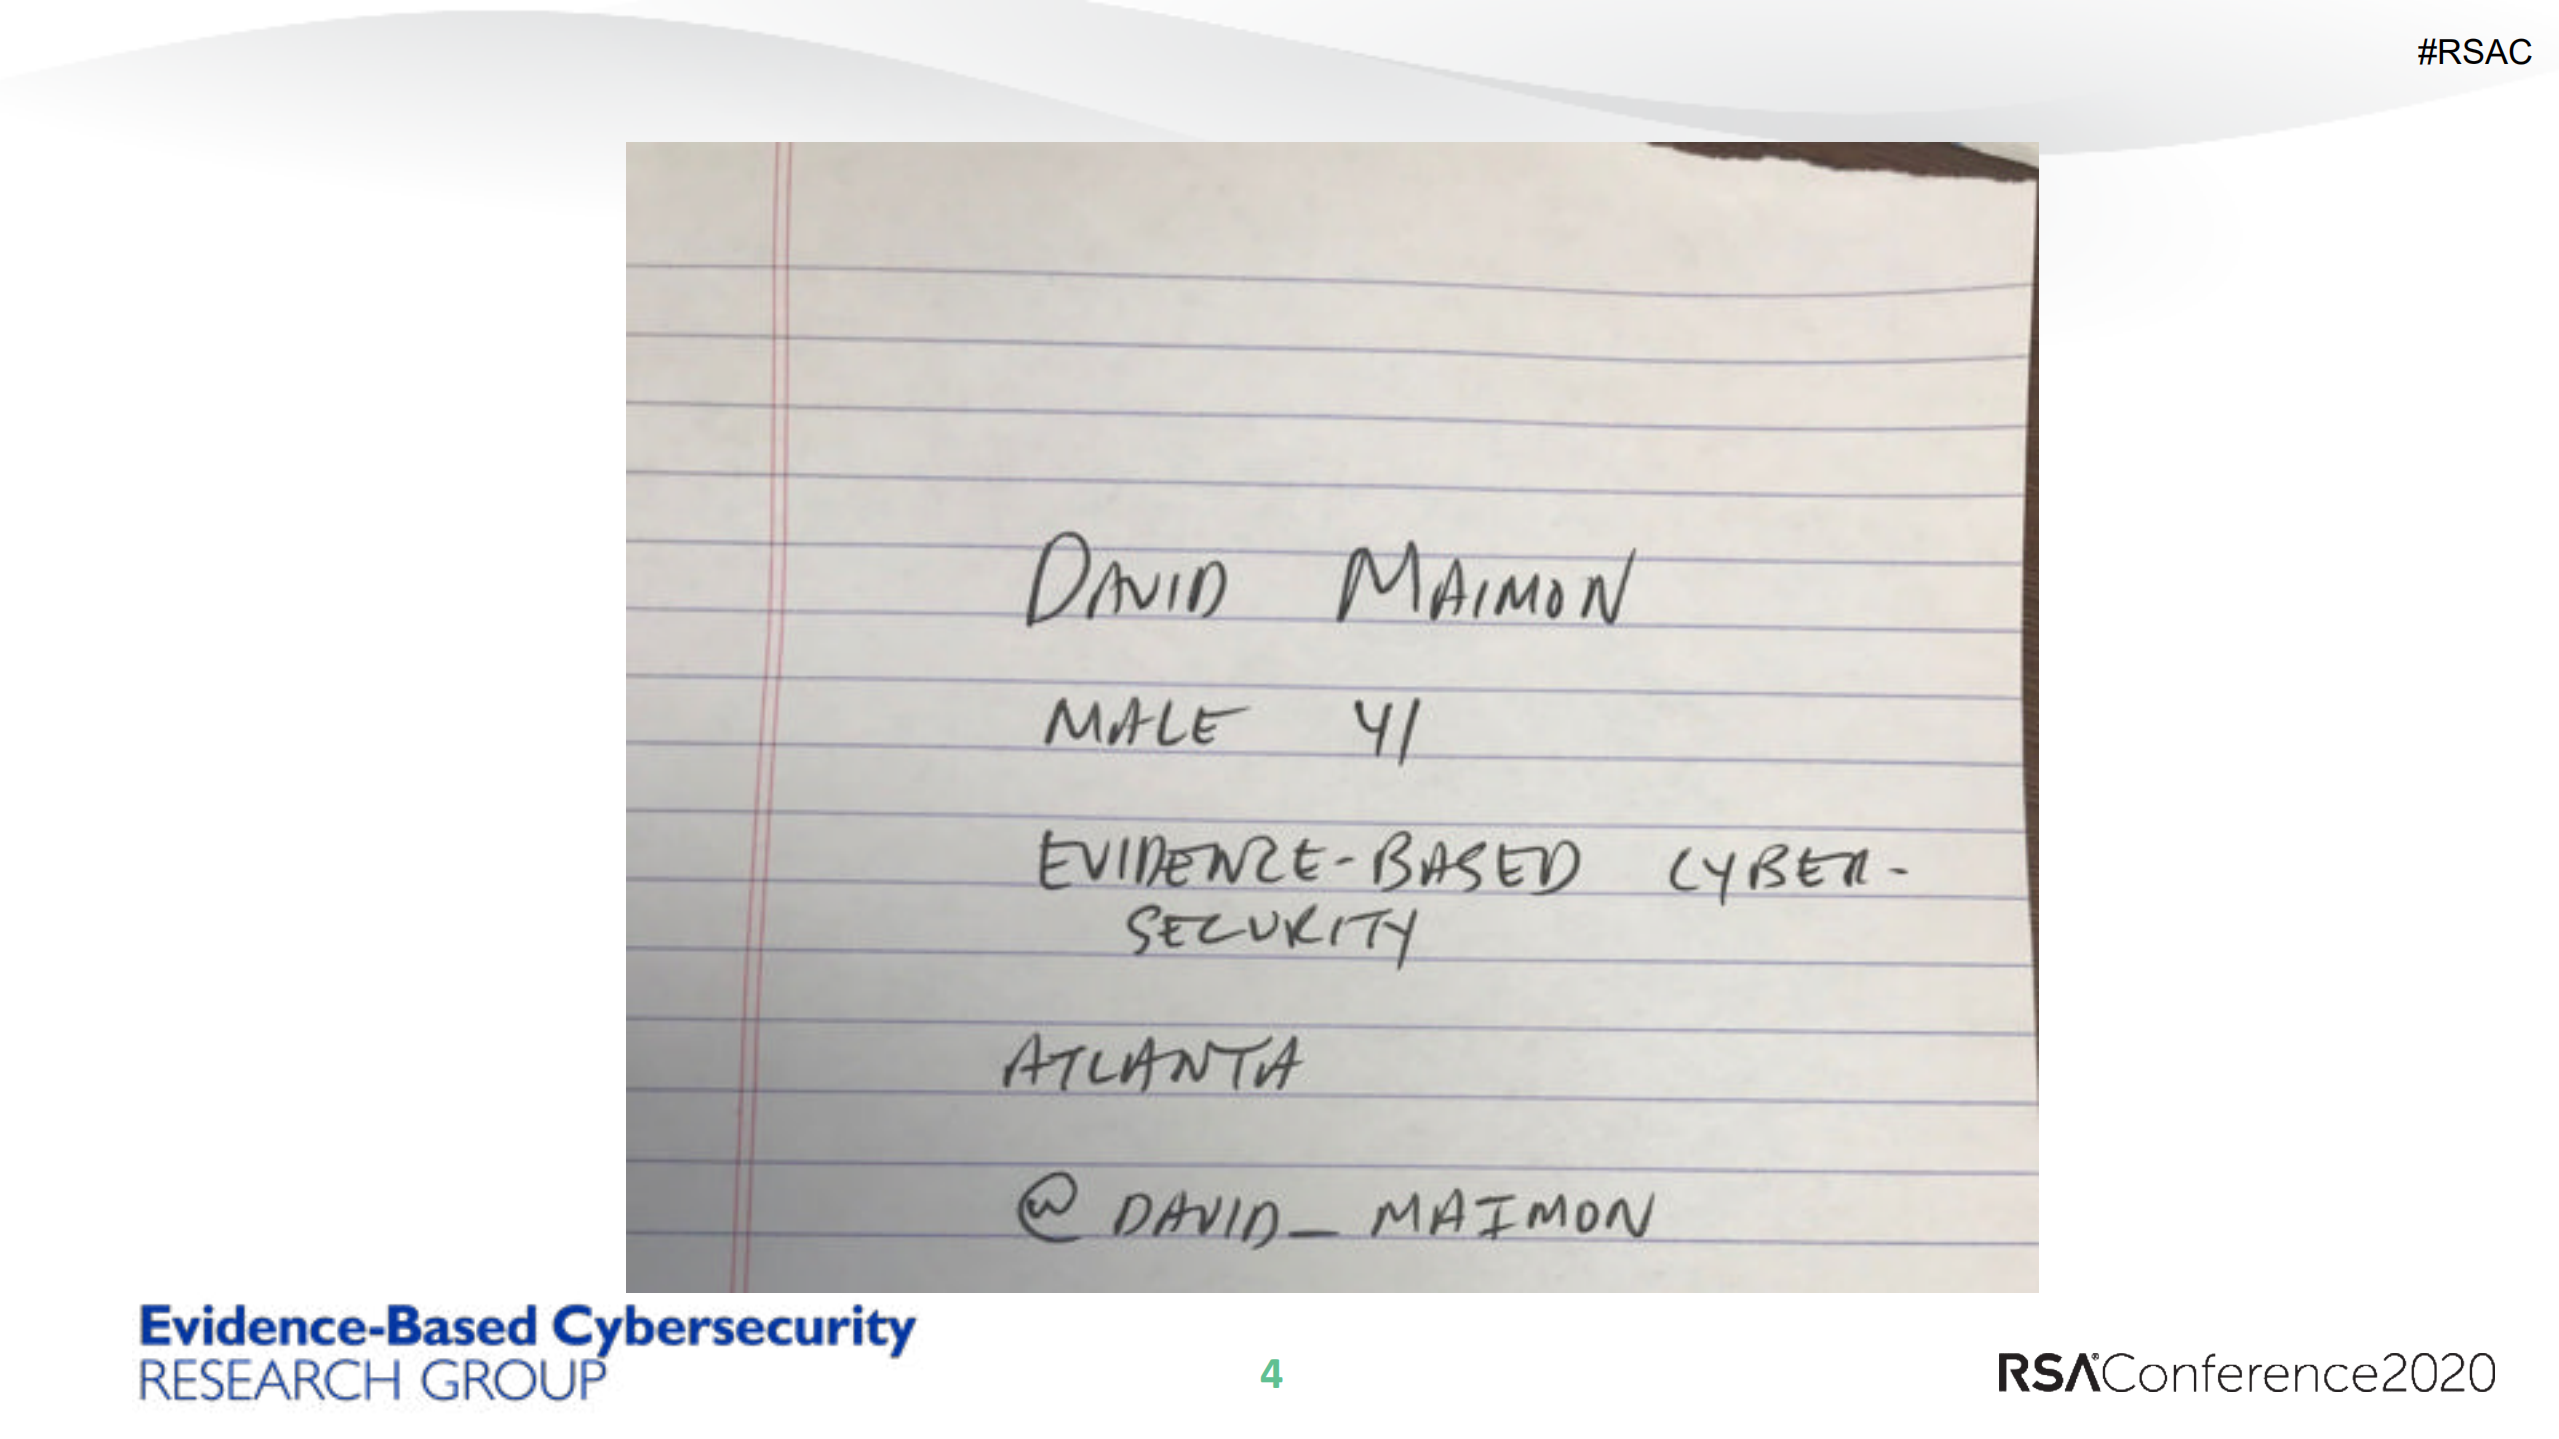 #RSAC
DAVID MAIMON
MALE 41
EVIDENCE-BASED CYBER-
SECURITY
ATLANTA
@DAVID_MAIMON
Evidence-Based Cybersecurity
RESEARCH GROUP
4
RSA®Conference2020